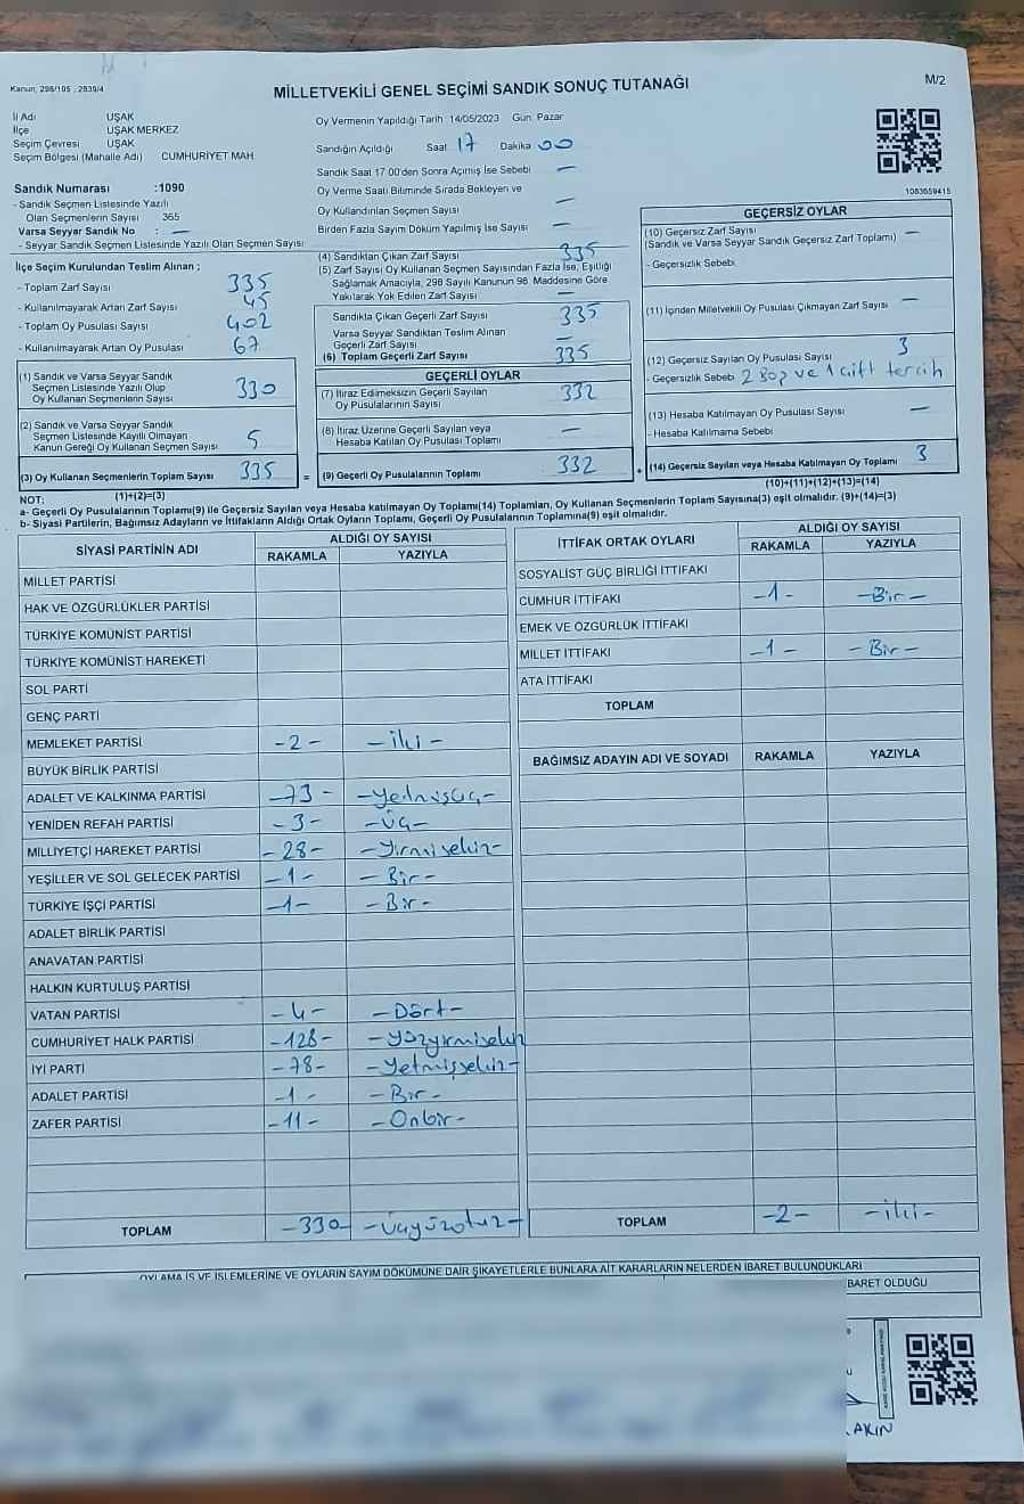 Kanun, 298/105 , 2839/4
MİLLETVEKİLİ GENEL SEÇİMİ SANDIK SONUÇ TUTANAĞI
M/2
İl Adı UŞAK
İlçe UŞAK MERKEZ
Seçim Çevresi UŞAK
Seçim Bölgesi (Mahalle Adı) CUMHURİYET MAH.
Sandık Numarası :1090
- Sandık Seçmen Listesinde Yazılı
Olan Seçmenlerin Sayısı 365
Varsa Seyyar Sandık No : —
- Seyyar Sandık Seçmen Listesinde Yazılı Olan Seçmen Sayısı
Oy Vermenin Yapıldığı Tarih 14/05/2023 Gün Pazar
Sandığın Açıldığı Saat 17 Dakika 00
Sandık Saat 17.00'den Sonra Açılmış İse Sebebi —
Oy Verme Saati Bitiminde Sırada Bekleyen ve
Oy Kullandırılan Seçmen Sayısı —
Birden Fazla Sayım Döküm Yapılmış İse Sayısı —
1083659415
İlçe Seçim Kurulundan Teslim Alınan ;
- Toplam Zarf Sayısı 335
- Kullanılmayarak Artan Zarf Sayısı 45
- Toplam Oy Pusulası Sayısı 402
- Kullanılmayarak Artan Oy Pusulası 67
(1) Sandık ve Varsa Seyyar Sandık
Seçmen Listesinde Yazılı Olup
Oy Kullanan Seçmenlerin Sayısı 330
(2) Sandık ve Varsa Seyyar Sandık
Seçmen Listesinde Kayıtlı Olmayan
Kanun Gereği Oy Kullanan Seçmen Sayısı 5
(3) Oy Kullanan Seçmenlerin Toplam Sayısı 335
(1)+(2)=(3)
(4) Sandıktan Çıkan Zarf Sayısı 335
(5) Zarf Sayısı Oy Kullanan Seçmen Sayısından Fazla İse, Eşitliği
Sağlamak Amacıyla, 298 Sayılı Kanunun 98. Maddesine Göre
Yakılarak Yok Edilen Zarf Sayısı —
Sandıkta Çıkan Geçerli Zarf Sayısı 335
Varsa Seyyar Sandıktan Teslim Alınan
Geçerli Zarf Sayısı —
(6) Toplam Geçerli Zarf Sayısı 335
GEÇERLİ OYLAR
(7) İtiraz Edilmeksizin Geçerli Sayılan
Oy Pusulalarının Sayısı 332
(8) İtiraz Üzerine Geçerli Sayılan veya
Hesaba Katılan Oy Pusulası Toplamı —
= (9) Geçerli Oy Pusulalarının Toplamı 332
GEÇERSİZ OYLAR
(10) Geçersiz Zarf Sayısı
(Sandık ve Varsa Seyyar Sandık Geçersiz Zarf Toplamı) —
- Geçersizlik Sebebi
(11) İçinden Milletvekili Oy Pusulası Çıkmayan Zarf Sayısı —
(12) Geçersiz Sayılan Oy Pusulası Sayısı 3
- Geçersizlik Sebebi 2 Boş ve 1 çift tercih
(13) Hesaba Katılmayan Oy Pusulası Sayısı —
- Hesaba Katılmama Sebebi
+ (14) Geçersiz Sayılan veya Hesaba Katılmayan Oy Toplamı 3
(10)+(11)+(12)+(13)=(14)
NOT:
a- Geçerli Oy Pusulalarının Toplamı(9) ile Geçersiz Sayılan veya Hesaba katılmayan Oy Toplamı(14) Toplamları, Oy Kullanan Seçmenlerin Toplam Sayısına(3) eşit olmalıdır. (9)+(14)=(3)
b- Siyasi Partilerin, Bağımsız Adayların ve İttifakların Aldığı Ortak Oyların Toplamı, Geçerli Oy Pusulalarının Toplamına(9) eşit olmalıdır.
SİYASİ PARTİNİN ADI ALDIĞI OY SAYISI
RAKAMLA YAZIYLA
MİLLET PARTİSİ
HAK VE ÖZGÜRLÜKLER PARTİSİ
TÜRKİYE KOMÜNİST PARTİSİ
TÜRKİYE KOMÜNİST HAREKETİ
SOL PARTİ
GENÇ PARTİ
MEMLEKET PARTİSİ -2- -iki-
BÜYÜK BİRLİK PARTİSİ
ADALET VE KALKINMA PARTİSİ -73- -Yetmişüç-
YENİDEN REFAH PARTİSİ -3- -Üç-
MİLLİYETÇİ HAREKET PARTİSİ -28- -Yirmisekiz-
YEŞİLLER VE SOL GELECEK PARTİSİ -1- -Bir-
TÜRKİYE İŞÇİ PARTİSİ -1- -Bir-
ADALET BİRLİK PARTİSİ
ANAVATAN PARTİSİ
HALKIN KURTULUŞ PARTİSİ
VATAN PARTİSİ -4- -Dört-
CUMHURİYET HALK PARTİSİ -128- -Yüzyirmisekiz
İYİ PARTİ -78- -Yetmişsekiz-
ADALET PARTİSİ -1- -Bir-
ZAFER PARTİSİ -11- -Onbir-
TOPLAM -330- -Üçyüzotuz-
İTTİFAK ORTAK OYLARI ALDIĞI OY SAYISI
RAKAMLA YAZIYLA
SOSYALİST GÜÇ BİRLİĞİ İTTİFAKI
CUMHUR İTTİFAKI -1- -Bir-
EMEK VE ÖZGÜRLÜK İTTİFAKI
MİLLET İTTİFAKI -1- -Bir-
ATA İTTİFAKI
TOPLAM
BAĞIMSIZ ADAYIN ADI VE SOYADI RAKAMLA YAZIYLA
TOPLAM -2- -iki-
OYLAMA İŞ VE İŞLEMLERİNE VE OYLARIN SAYIM DÖKÜMÜNE DAİR ŞİKAYETLERLE BUNLARA AİT KARARLARIN NELERDEN İBARET BULUNDUKLARI
İBARET OLDUĞU
AKIN